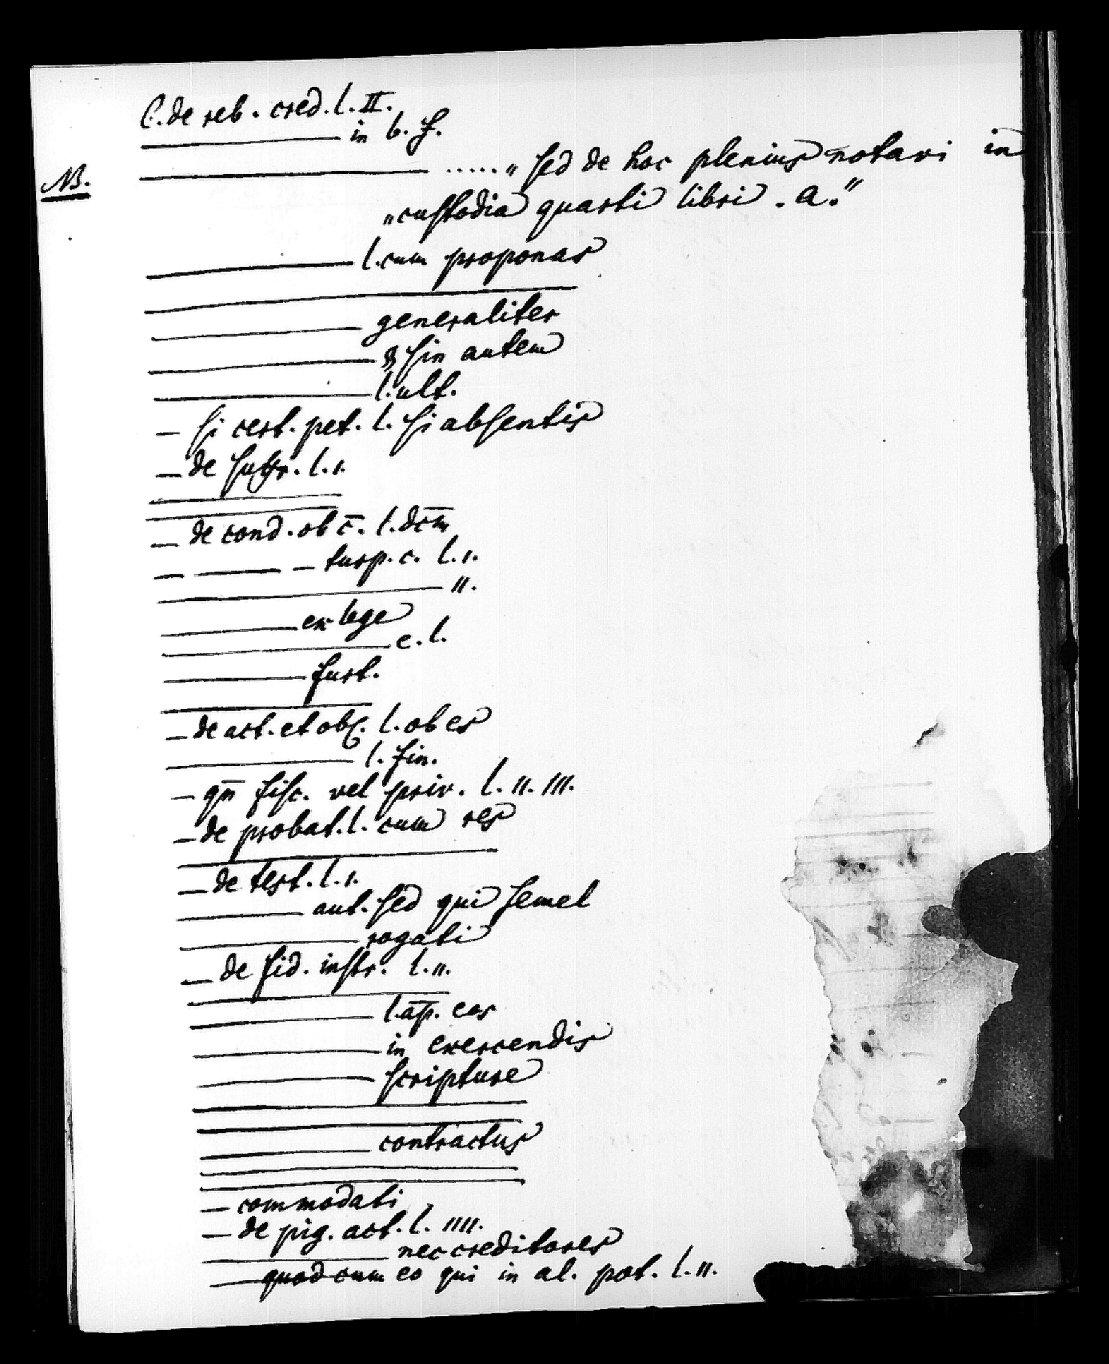 C. de reb. cred. l. II.
——— in b. f.
NB. ——— ..... „sed de hoc plenius notavi in
„custodia quarti libri . a."
——— l. cum proponas
———
——— generaliter
——— § sin autem
——— l. ult.
— si cert. pet. l. si absentis
— de l. I.
———
— de cond. ob c̄. l. dcm̄
— —— — turp. c. l. I.
——— II.
——— ex lege
——— e. l.
——— furt.
———
— de act. et obl. l. ob es
——— l. fin.
— qn̄ fisc. vel priv. l. II. III.
— de probat. l. cum res
———
— de test. l. I.
——— aut. sed qui semel
——— rogati
— de fid. instr. l. II.
———
——— l. ap̄. eos
——— in exercendis
——— scripture
———
———
——— contractus
———
———
— commodati
— de pig. act. l. IIII.
——— nec creditores
— quod cum eo qui in al. pot. l. II.